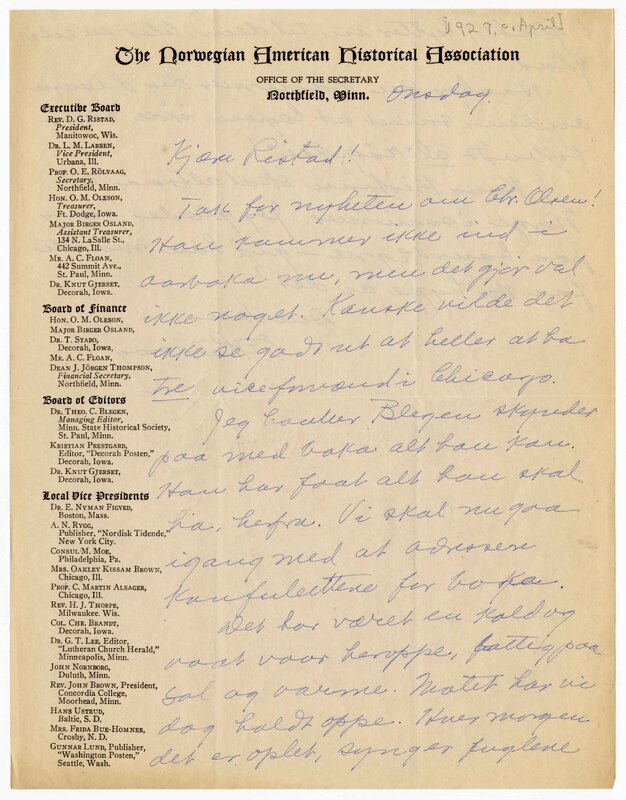 [1927, c. April]
The Norwegian American Historical Association
OFFICE OF THE SECRETARY
Northfield, Minn.
Onsdag.
Executive Board
REV. D. G. RISTAD,
President,
Manitowoc, Wis.
DR. L. M. LARSEN,
Vice President,
Urbana, Ill.
PROF. O. E. RÖLVAAG,
Secretary,
Northfield, Minn.
HON. O. M. OLESON,
Treasurer,
Ft. Dodge, Iowa.
MAJOR BIRGER OSLAND,
Assistant Treasurer,
134 N. LaSalle St.,
Chicago, Ill.
MR. A. C. FLOAN,
442 Summit Ave.,
St. Paul, Minn.
DR. KNUT GJERSET,
Decorah, Iowa.
Board of Finance
HON. O. M. OLESON,
MAJOR BIRGER OSLAND,
DR. T. STABO,
Decorah, Iowa.
MR. A. C. FLOAN,
DEAN J. JÖRGEN THOMPSON,
Financial Secretary,
Northfield, Minn.
Board of Editors
DR. THEO. C. BLEGEN,
Managing Editor,
Minn. State Historical Society,
St. Paul, Minn.
KRISTIAN PRESTGARD,
Editor, "Decorah Posten,"
Decorah, Iowa.
DR. KNUT GJERSET,
Decorah, Iowa.
Local Vice Presidents
DR. E. NYMAN FIGVED,
Boston, Mass.
A. N. RYGG,
Publisher, "Nordisk Tidende,"
New York City.
CONSUL M. MOE,
Philadelphia, Pa.
MRS. OAKLEY KISSAM BROWN,
Chicago, Ill.
PROF. C. MARTIN ALSAGER,
Chicago, Ill.
REV. H. J. THORPE,
Milwaukee. Wis.
COL. CHR. BRANDT,
Decorah, Iowa.
DR. G. T. LEE, Editor,
"Lutheran Church Herald,"
Minneapolis, Minn.
JOHN NORNBORG,
Duluth, Minn.
REV. JOHN BROWN, President,
Concordia College,
Moorhead, Minn.
HANS USTRUD,
Baltic, S. D.
MRS. FRIDA BUE-HOMNES,
Crosby, N. D.
GUNNAR LUND, Publisher,
"Washington Posten,"
Seattle, Wash.
Kjære Ristad!
Tak for nyheten om Chr. Olsen!
Han kommer ikke ind i
aarboka nu, men det gjør vel
ikke noget. Kanske vilde det
ikke se godt ut at heller at ha
tre viceformænd i Chicago.
Jeg haaber Blegen skynder
paa med boka alt han kan.
Han har faat alt han skal
ha, herfra. Vi skal nu gaa
igang med at adressere
konfuluttene for boka.
Det har været en kold og
vaat vaar heroppe, fattig paa
sol og varme. Motet har vi
dog holdt oppe. Hver morgen
det er oplet, synger fuglene